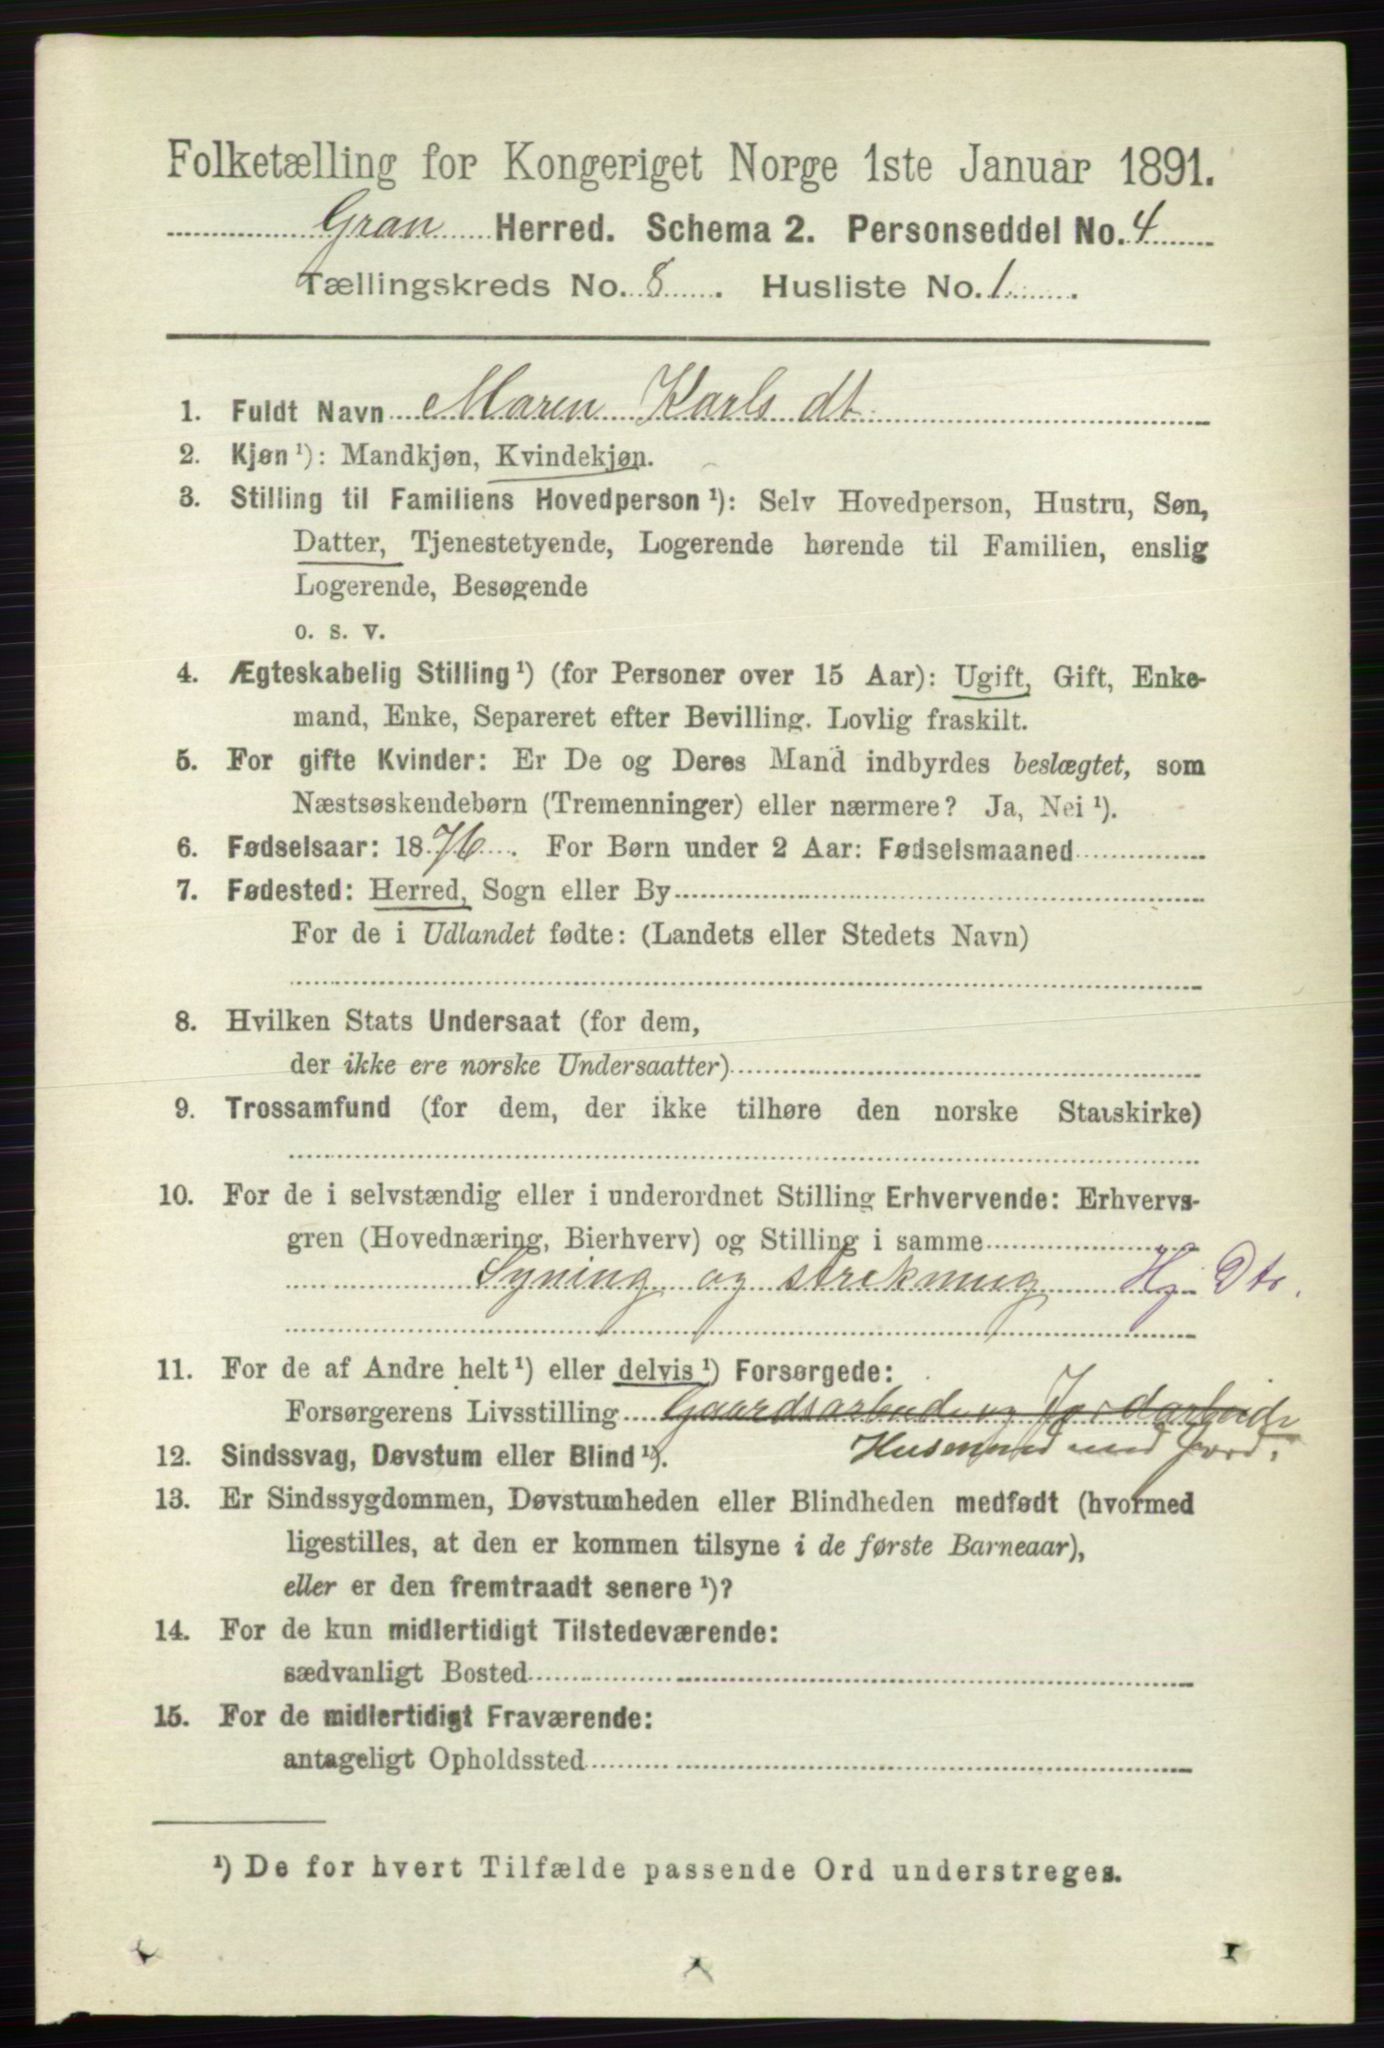 Folketælling for Kongeriget Norge 1ste Januar 1891.
Gran Herred. Schema 2. Personseddel No. 4
Tællingskreds No. 8. Husliste No. 1.
1. Fuldt Navn Maren Karls dt.
2. Kjøn ¹): Mandkjøn, Kvindekjøn.
3. Stilling til Familiens Hovedperson ¹): Selv Hovedperson, Hustru, Søn,
Datter, Tjenestetyende, Logerende hørende til Familien, enslig
Logerende, Besøgende
o. s. v.
4. Ægteskabelig Stilling ¹) (for Personer over 15 Aar): Ugift, Gift, Enke-
mand, Enke, Separeret efter Bevilling. Lovlig fraskilt.
5. For gifte Kvinder: Er De og Deres Mand indbyrdes beslægtet, som
Næstsøskendebørn (Tremenninger) eller nærmere? Ja, Nei ¹).
6. Fødselsaar: 1876. For Børn under 2 Aar: Fødselsmaaned
7. Fødested: Herred, Sogn eller By
For de i Udlandet fødte: (Landets eller Stedets Navn)
8. Hvilken Stats Undersaat (for dem,
der ikke ere norske Undersaatter)
9. Trossamfund (for dem, der ikke tilhøre den norske Statskirke)
10. For de i selvstændig eller i underordnet Stilling Erhvervende: Erhvervs-
gren (Hovednæring, Bierhverv) og Stilling i samme
Syning og strikning Hj. Dtr.
11. For de af Andre helt ¹) eller delvis ¹) Forsørgede:
Forsørgerens Livsstilling Gaardsarbeide og Jordarbeide
Husmand med Jord.
12. Sindssvag, Døvstum eller Blind ¹).
13. Er Sindssygdommen, Døvstumheden eller Blindheden medfødt (hvormed
ligestilles, at den er kommen tilsyne i de første Barneaar),
eller er den fremtraadt senere ¹)?
14. For de kun midlertidigt Tilstedeværende:
sædvanligt Bosted
15. For de midlertidigt Fraværende:
antageligt Opholdssted
¹) De for hvert Tilfælde passende Ord understreges.